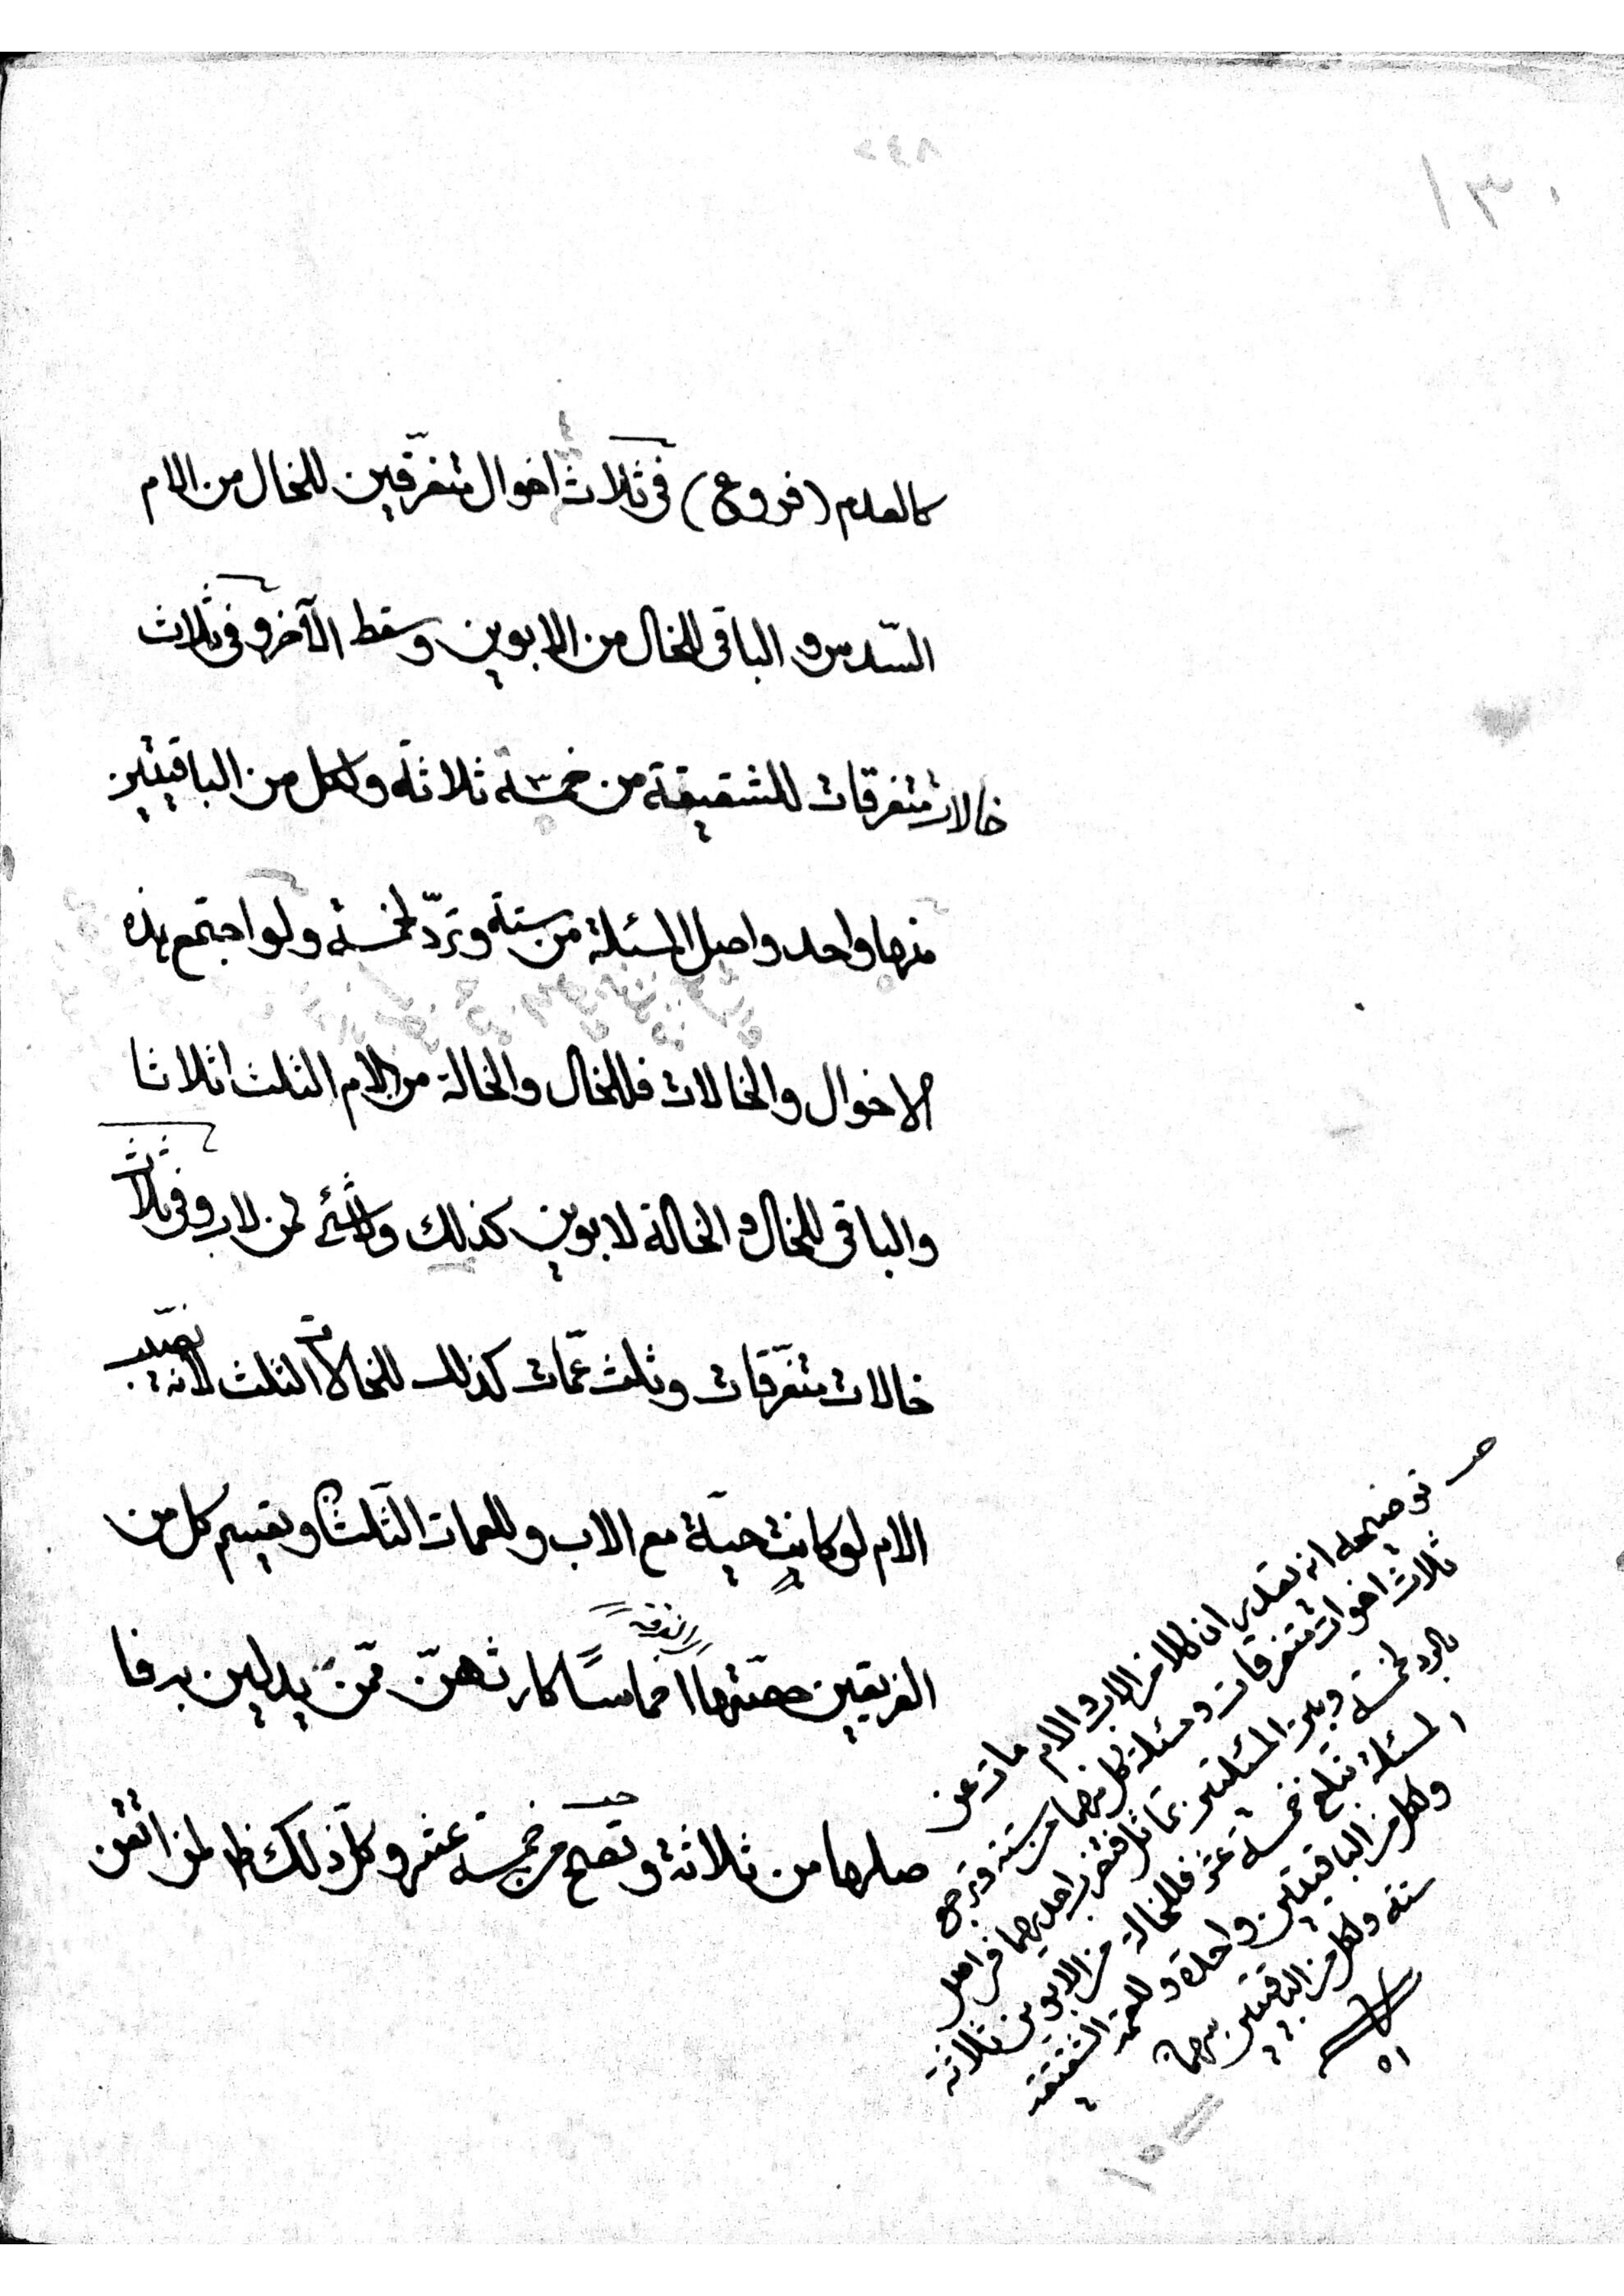 ١٣٠
كالعدم (فروع) في ثلاث اخوال متفرّقين للخال من الام
السّدس و الباقى للخال من الابوين وسقط الآخر و في ثلاث
خالات متفرقات للشقيقة من خمسة ثلاثة ولكل من الباقيتين
منها واحد واصل المسئلة من ستة وتردّ لخمسة ولو اجتمع هذه
الاخوال والخالات فللخال والخالة من الام الثلث اثلاثا
والباقى للخال و الخالة لابوين كذلك ولا شئ لمن لاب وفي ثلاث
خالات متفرّقات وثلث عمّات كذلك للخالات الثلث لانه نصيب
الام لو كانت حيّة مع الاب وللعمات الثلثان ويقسم كل من
الفريقين حصّتها اخماسًا كارثهنّ ممّن يدلين به فا
صلها من ثلاثة وتصح من خمسة عشر وكلّ ذلك ظ لمن اتقن
صـ توضيحه انه تقدير ان كلا من الاب والام مات عن
ثلاث اخوات متفرقات ومسئلة كل منهما من ستة وترجع
بالرد لخمسة وبين المسئلتين تماثل فتضرب احديهما في اصل
المسئلة تبلغ خمسة عشر فللخالة من الابوين ثلاثة
ولكل من الباقيتين واحدة وللعمة الشقيقة
ستة ولكل من الباقيتين سهمان
اه